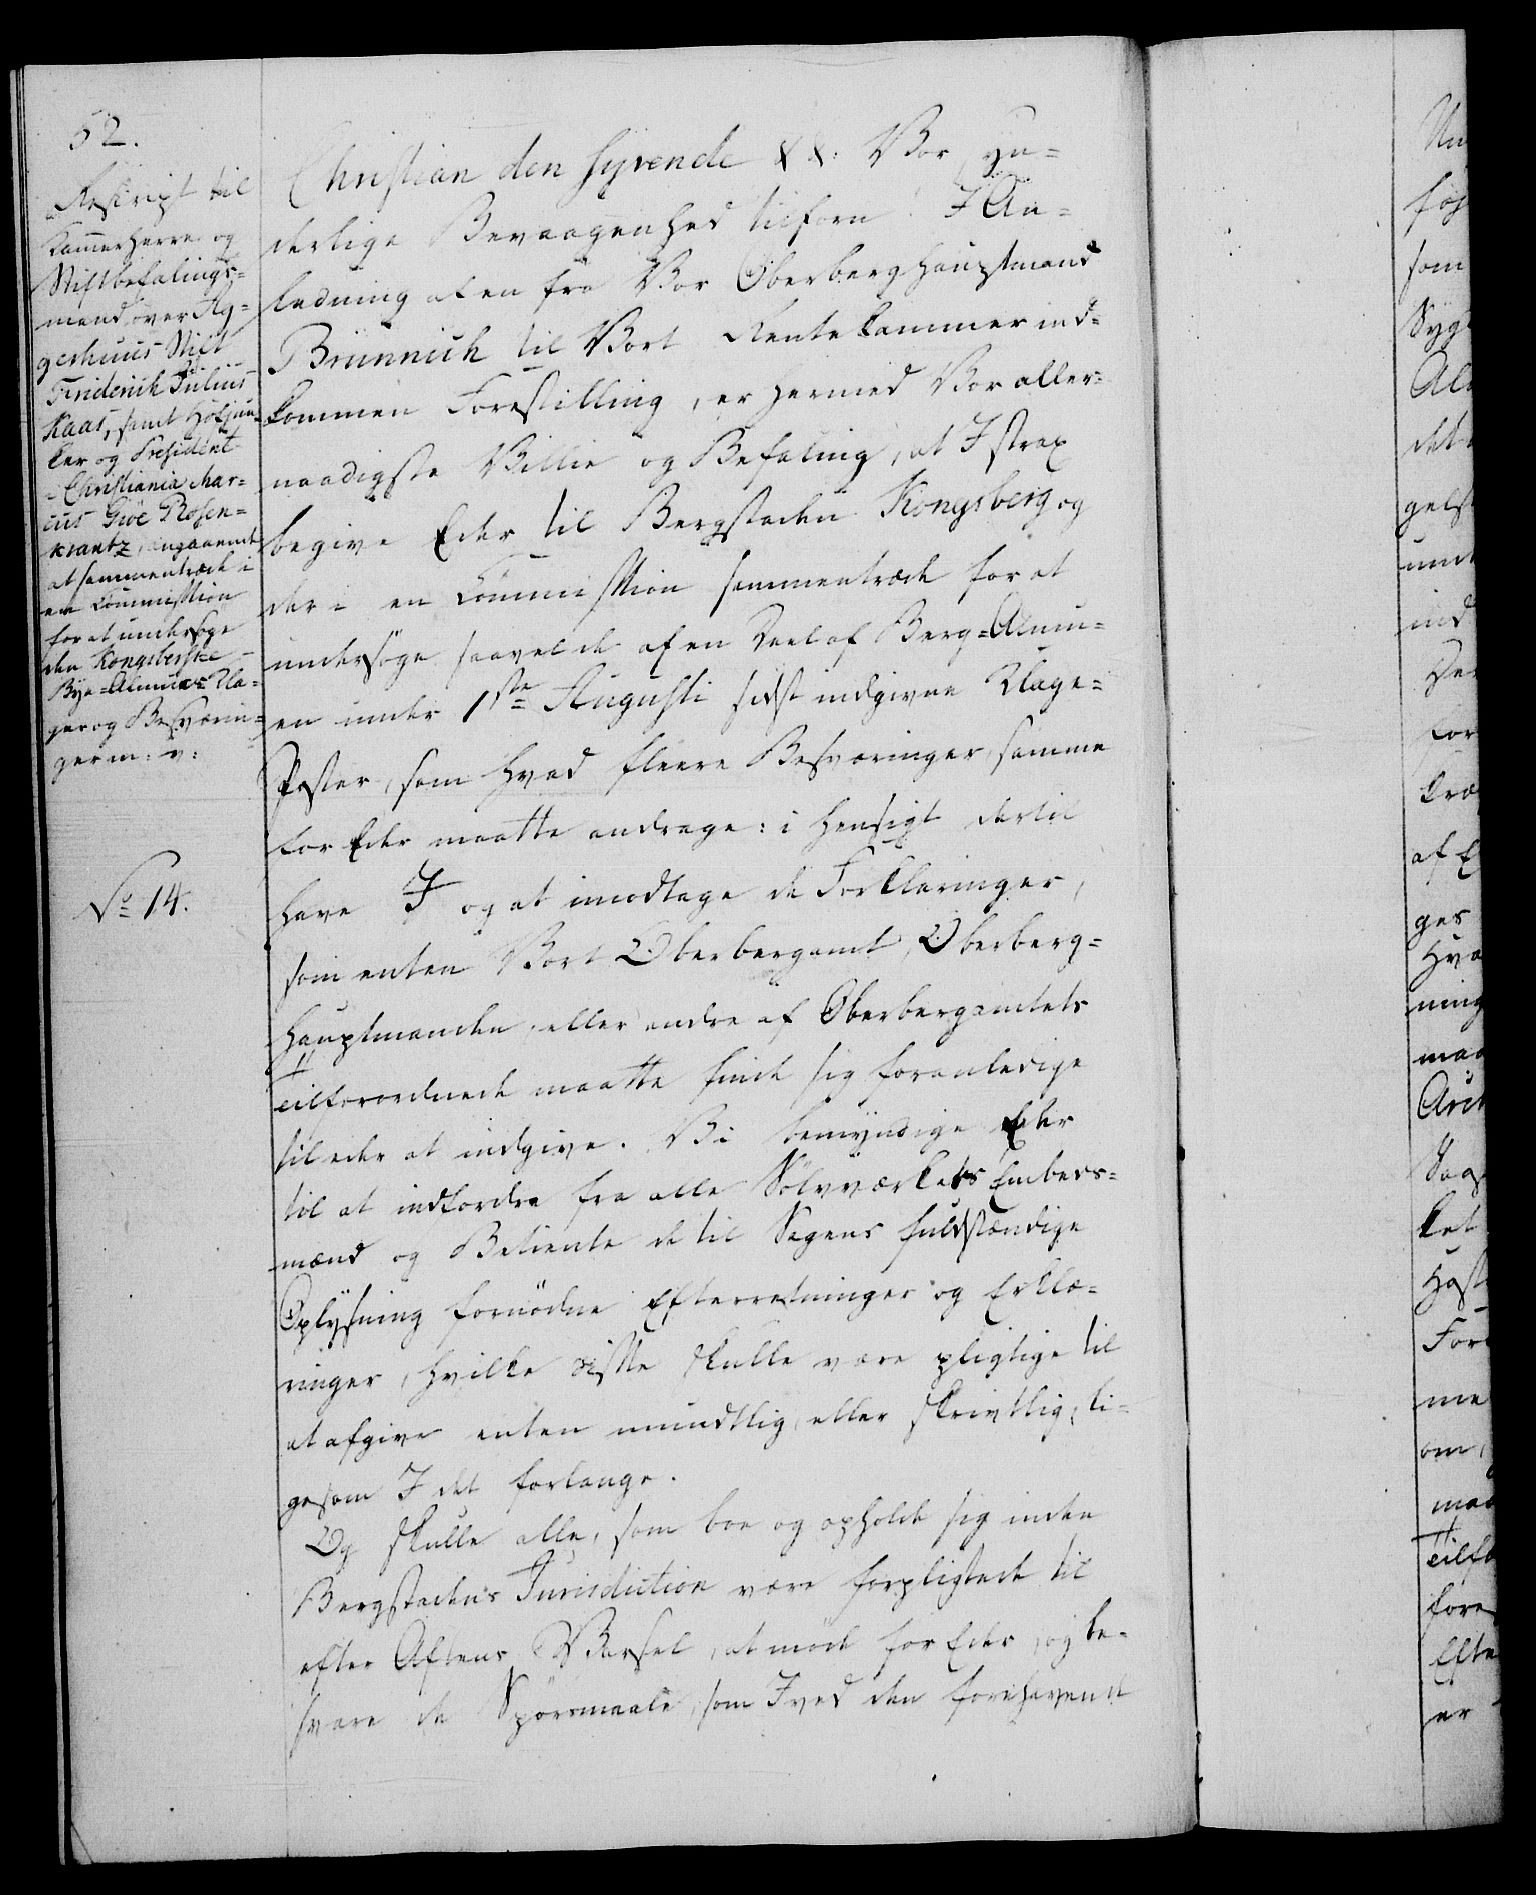 52.
Reskript til
Kammerherre og
Stiftbefalings-
mand over Ag-
gerhuus Stift
Friderich Julius
Kaas, samt Hofjun-
ker og Præsident
i Christiania Mar-
cus Giøe Rosen-
krantz, angaaende
at sammentræde i
en Commission
for at undersøge
den Kongsbergske
Bye-Almues Kla-
ger og Besværin-
ger m: v:
No 14.
Christian den Syvende &&: Vor yn-
derlige Bevaagenhed tilforn. I An-
ledning af en fra Vor Oberberghauptmand
Brünnich til Vort Rentekammer ind-
kommen Forestilling, er hermed Vor aller-
naadigste Villie og Befaling, at I strax
begive Eder til Bergstaden Kongsberg og
der i en Commission sammentræde for at
undersøge saavel de af en Deel af Berg-Almu-
en under 1ste Augusti sidst indgivne Klage-
Poster, som hvad fleere Besværinger, samme
for Eder maatte andrage: i Hensigt dertil
have I og at imodtage de Forklaringer,
som enten Vort Oberbergamt, Oberberg-
hauptmanden, eller andre af Oberbergamtets
Tilforordnede maatte finde sig foranledige
til eder at indgive. Vi bemyndige Eder
til at indfordre fra alle Sølvværkets Embeds-
mænd og Betiente de til Sagens fuldstændige
Oplysning fornødne Efterretninger og Erklæ-
ringer, hvilke disse skulle være pligtige til
at afgive enten mundtlig, eller skrivtlig, li-
gesom I det forlange.
Og skulle alle, som boe og opholde sig inden
Bergstadens Jurisdiction være forpligtede til
efter Aftens Varsel, at møde for Eder, og be-
svare de Spørsmaale, som I ved den forehavende